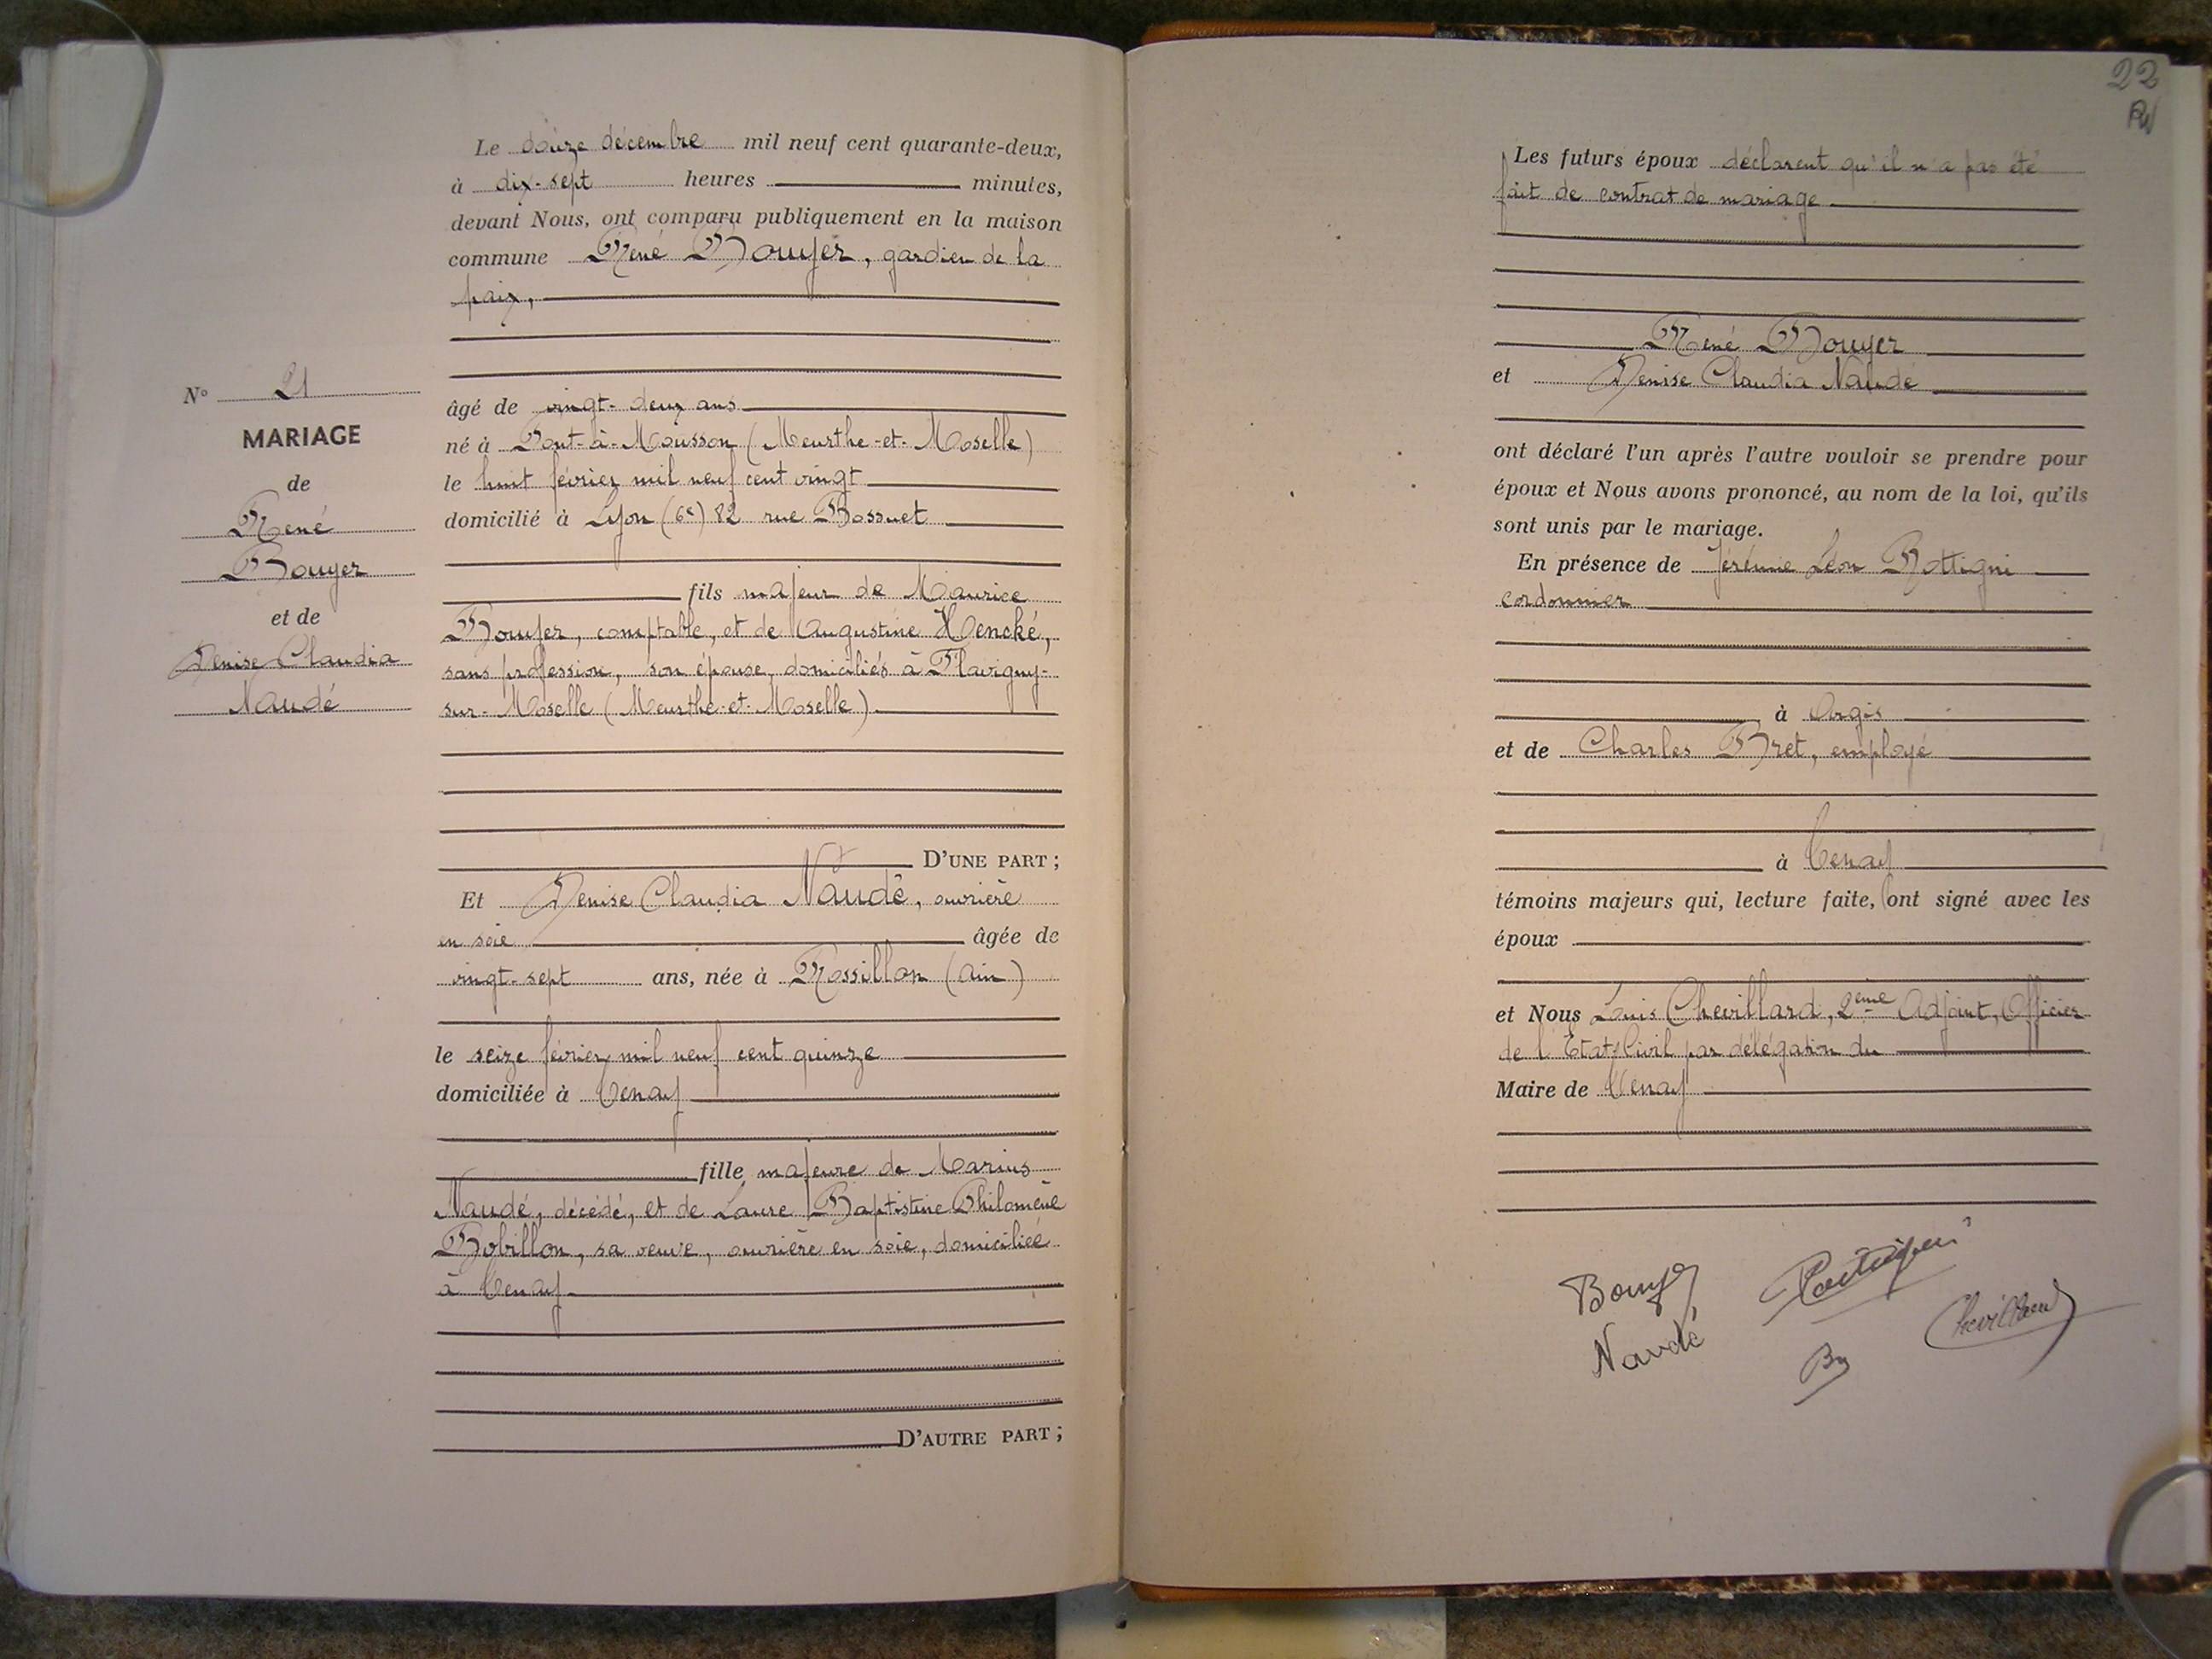 Le douze décembre mil neuf cent quarante-deux,
à dix-sept heures minutes,
devant Nous, ont comparu publiquement en la maison
commune René Bouyer, gardien de la
paix,
N° 21
MARIAGE
de
René
Bouyer
et de
Denise Claudia
Naudé
âgé de vingt-deux ans
né à Pont-à-Mousson (Meurthe-et-Moselle)
le huit février mil neuf cent vingt
domicilié à Lyon (6e) 82 rue Bossuet
fils majeur de Maurice
Bouyer, comptable, et de Augustine Hencké,
sans profession, son épouse, domiciliés à Flavigny-
sur-Moselle (Meurthe-et-Moselle)
D'UNE PART ;
Et Denise Claudia Naudé, ouvrière
en soie âgée de
vingt-sept ans, née à Rossillon (Ain)
le seize février mil neuf cent quinze
domiciliée à Tenay
fille majeure de Marius
Naudé, décédé, et de Laure Baptistine Philomène
Bobillon, sa veuve, ouvrière en soie, domiciliée
à Tenay
D'AUTRE PART ;
22
Les futurs époux déclarent qu'il n'a pas été
fait de contrat de mariage
René Bouyer
et Denise Claudia Naudé
ont déclaré l'un après l'autre vouloir se prendre pour
époux et Nous avons prononcé, au nom de la loi, qu'ils
sont unis par le mariage.
En présence de Jérémie Léon Bottigni
cordonnier
à Argis
et de Charles Bret, employé
à Tenay
témoins majeurs qui, lecture faite, ont signé avec les
époux
et Nous Louis Chevillard, 2ème Adjoint, Officier
de l'Etat Civil par délégation du
Maire de Tenay
Bouyer
Naudé
Chevillard